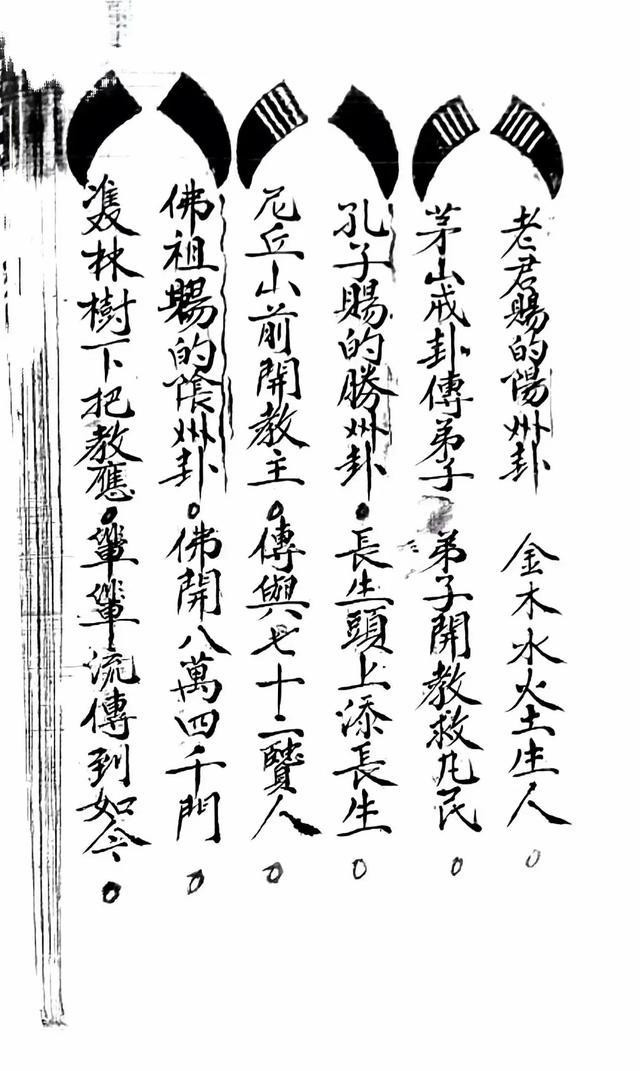 老君賜的陽州卦 金木水火土生人。
茅山戒卦傳弟子 弟子開教救凡民。
孔子賜的勝州卦。長生頭上添長生。
尼丘山前開教主。傳與七十二賢人。
佛祖賜的陰州卦。佛開八萬四千門。
林樹下把教應。輩輩流傳到如今。